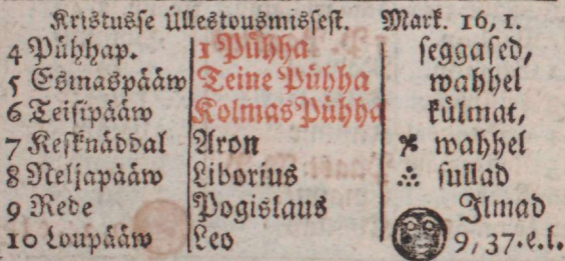 Kristusse Üllestousmissest. Mark. 16, 1.
4 Pühhap. 1 Pühha seggased,
5 Esmaspääw Teine Pühha wahhel
6 Teisipääw Kolmas Pühha külmat,
7 Kesknäddal Aron wahhel
8 Neljapääw Liborius sullad
9 Rede Pogislaus Ilmad
10 Loupääw Leo 9, 37. e. l.